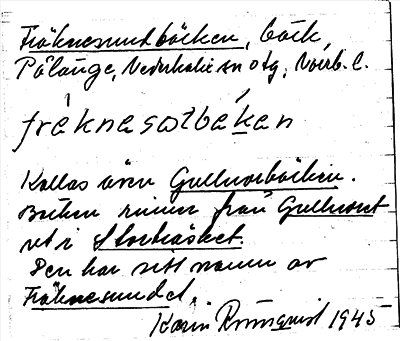 Fräknesundbäcken, bäck,
Pålänge, Nederkalix sn o tg, Norrb. l.
fräknesøtbèken
Kallas även Gullnorbäcken.
Bäcken rinner från Gullnoret
ut i Storträsket.
Den har sitt namn av
Fräknesundet.
Karin Rönnquist 1945